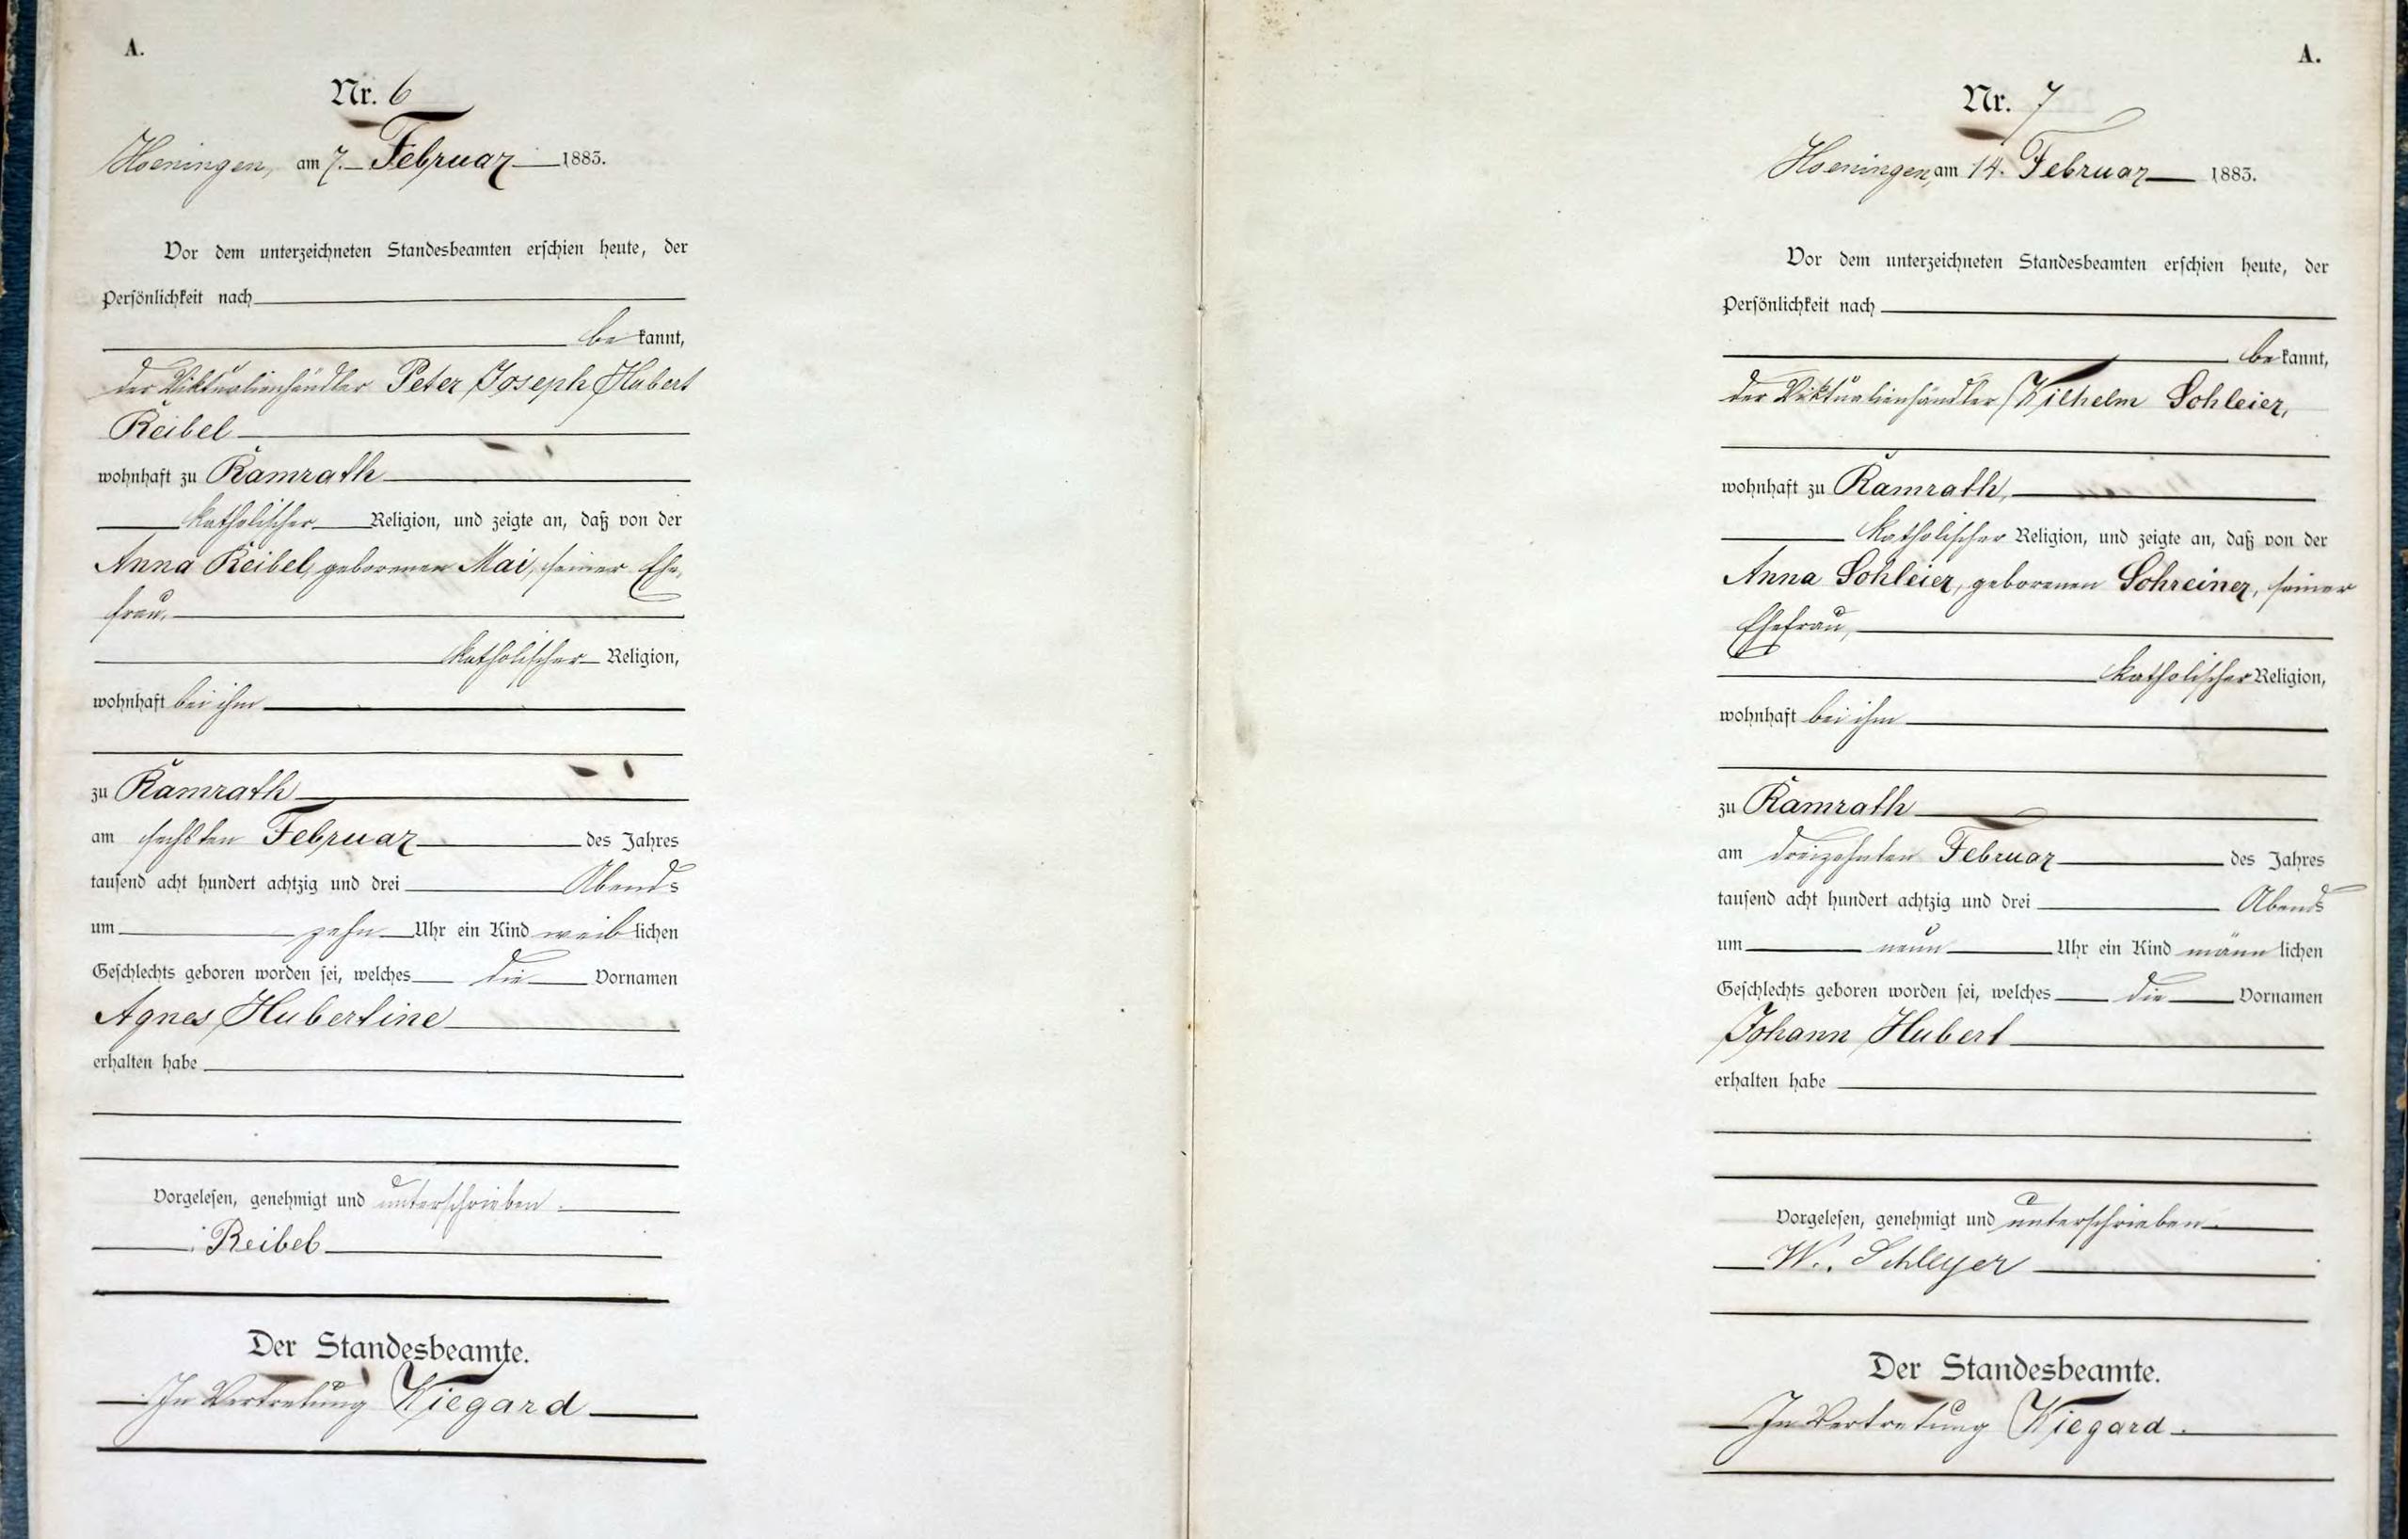 A.
Nr. 6
Hoeningen, am 7. Februar 1883.
Vor dem unterzeichneten Standesbeamten erschien heute, der
Persönlichkeit nach
be kannt,
der Viktualienhändler Peter Joseph Hubert
Reibel
wohnhaft zu Ramrath
katholischer Religion, und zeigte an, daß von der
Anna Reibel, geborenen Mai, seiner Ehe-
frau,
katholischer Religion,
wohnhaft bei ihm
zu Ramrath
am sechsten Februar des Jahres
tausend acht hundert achtzig und drei Abends
um zehn Uhr ein Kind weiblichen
Geschlechts geboren worden sei, welches die Vornamen
Agnes Hubertine
erhalten habe
Vorgelesen, genehmigt und unterschrieben.
Reibel
Der Standesbeamte.
In Vertretung Wiegard
A.
Nr. 7
Hoeningen, am 14. Februar 1883.
Vor dem unterzeichneten Standesbeamten erschien heute, der
Persönlichkeit nach
be kannt,
der Viktualienhändler Wilhelm Schleier,
wohnhaft zu Ramrath,
katholischer Religion, und zeigte an, daß von der
Anna Schleier, geborenen Schreiner, seiner
Ehefrau,
katholischer Religion,
wohnhaft bei ihm
zu Ramrath
am dreizehnten Februar des Jahres
tausend acht hundert achtzig und drei Abends
um neun Uhr ein Kind männlichen
Geschlechts geboren worden sei, welches die Vornamen
Johann Hubert
erhalten habe
Vorgelesen, genehmigt und unterschrieben.
W. Schleyer
Der Standesbeamte.
In Vertretung Wiegard.